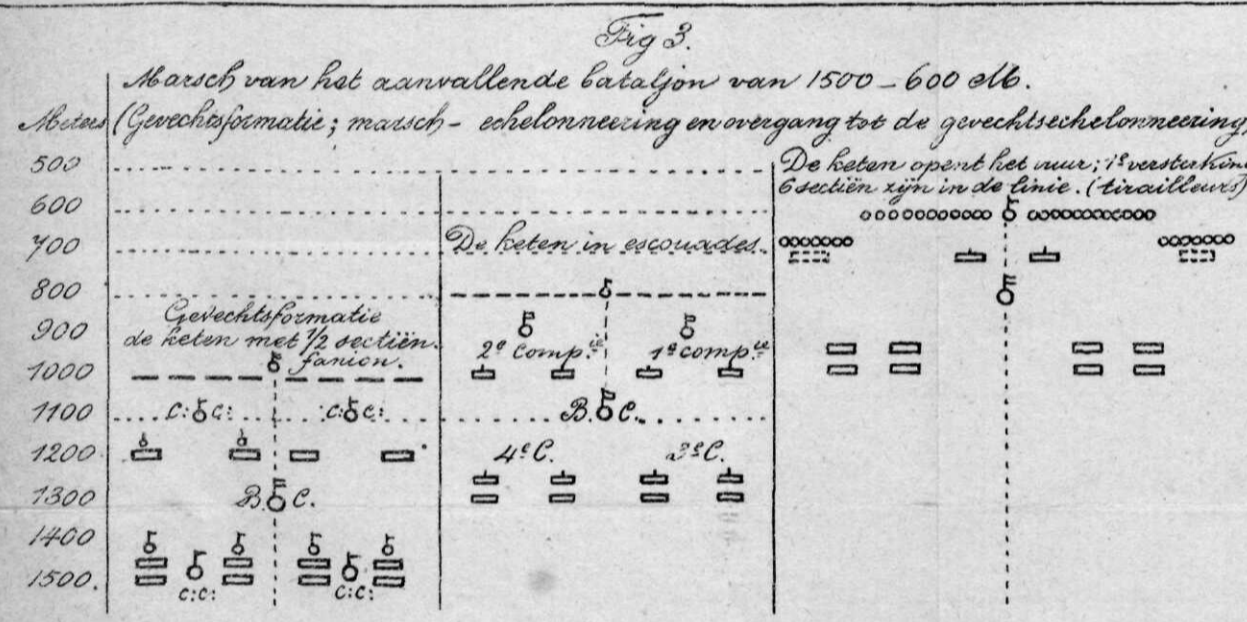 Fig 3.
Marsch van het aanvallende bataljon van 1500 - 600 M.
Meters (Gevechtsformatie; marsch - echelonneering en overgang tot de gevechtsechelonneering)
500
600
700
800
900
1000
1100
1200
1300
1400
1500.
Gevechtsformatie
de keten met 1/2 sectiën.
fanion.
C: C:
C: C:
B. C.
C: C:
C: C:
De keten in escouades.
2e Comp.ie
1e Comp.ie
B. C.
4e C.
3e C.
De keten opent het vuur; 1e versterking
6 sectiën zijn in de linie. (tirailleurs)